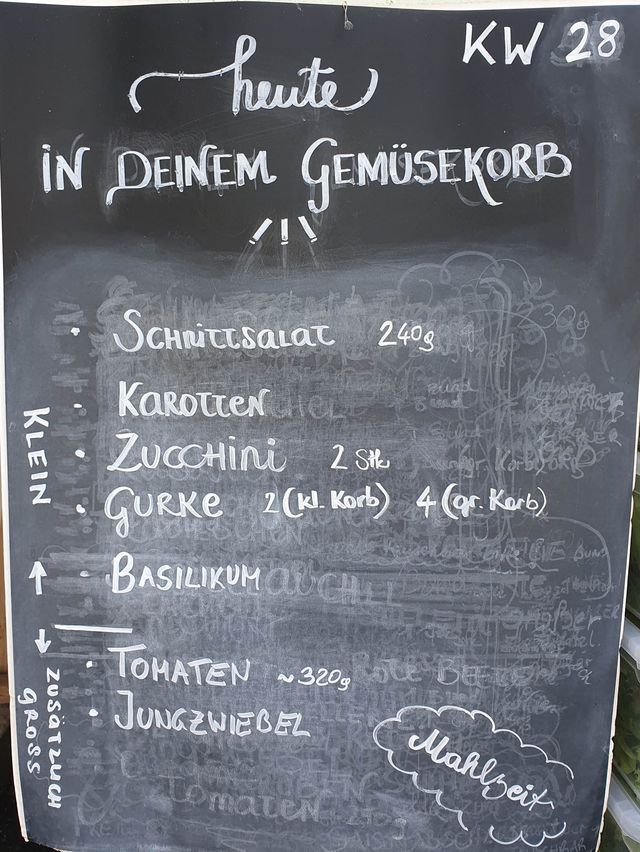 KW 28
heute
IN DEINEM GEMÜSEKORB
SCHNITTSALAT 240g
KAROTTEN
ZUCCHINI 2 Stk
GURKE 2 (kl. Korb) 4 (gr. Korb)
BASILIKUM
TOMATEN ~320g
JUNGZWIEBEL
KLEIN
ZUSÄTZLICH
GROSS
Mahlzeit
TOMATEN